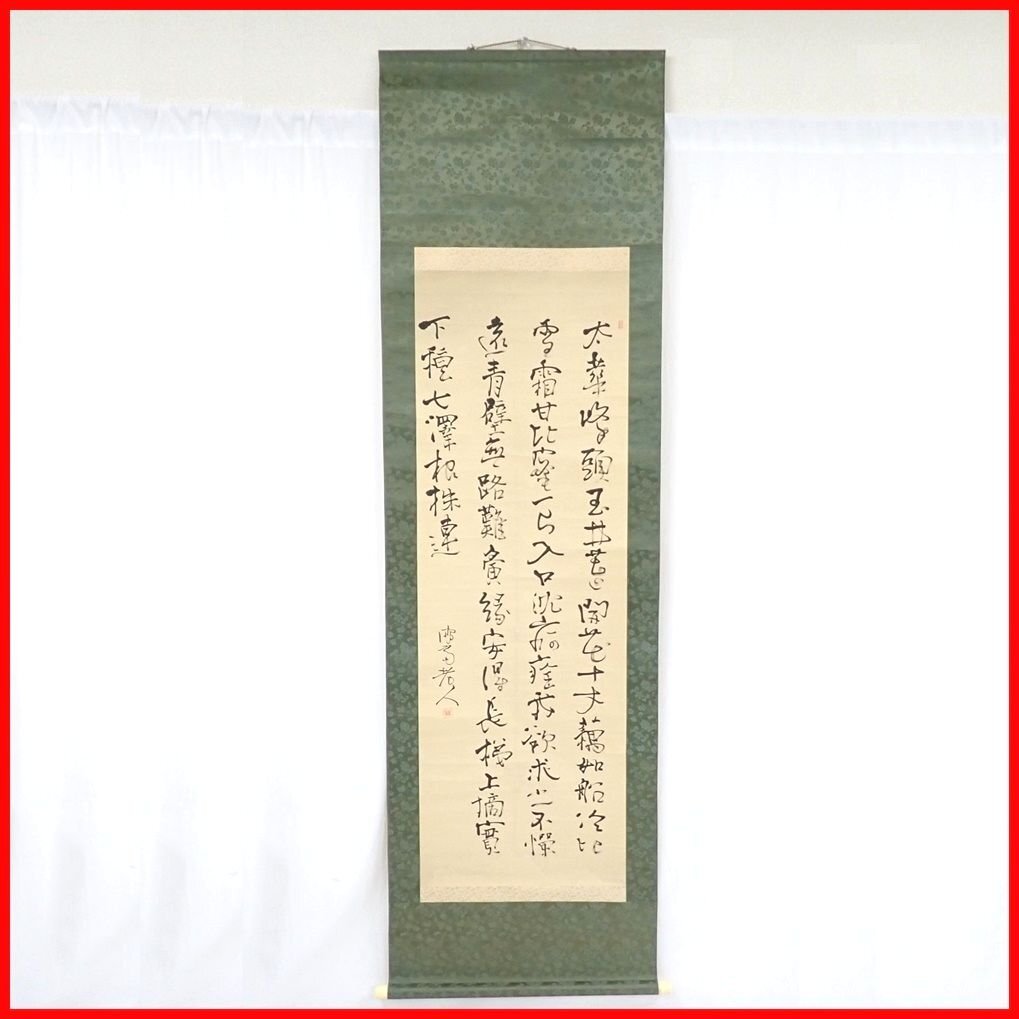 太華峰頭玉井蓮開花十丈藕如船冷比
雪霜甘比蜜一片入口沈痾痊我欲求之不憚
遠青壁無路難夤緣安得長梯上摘實
下種七澤根株連
老人